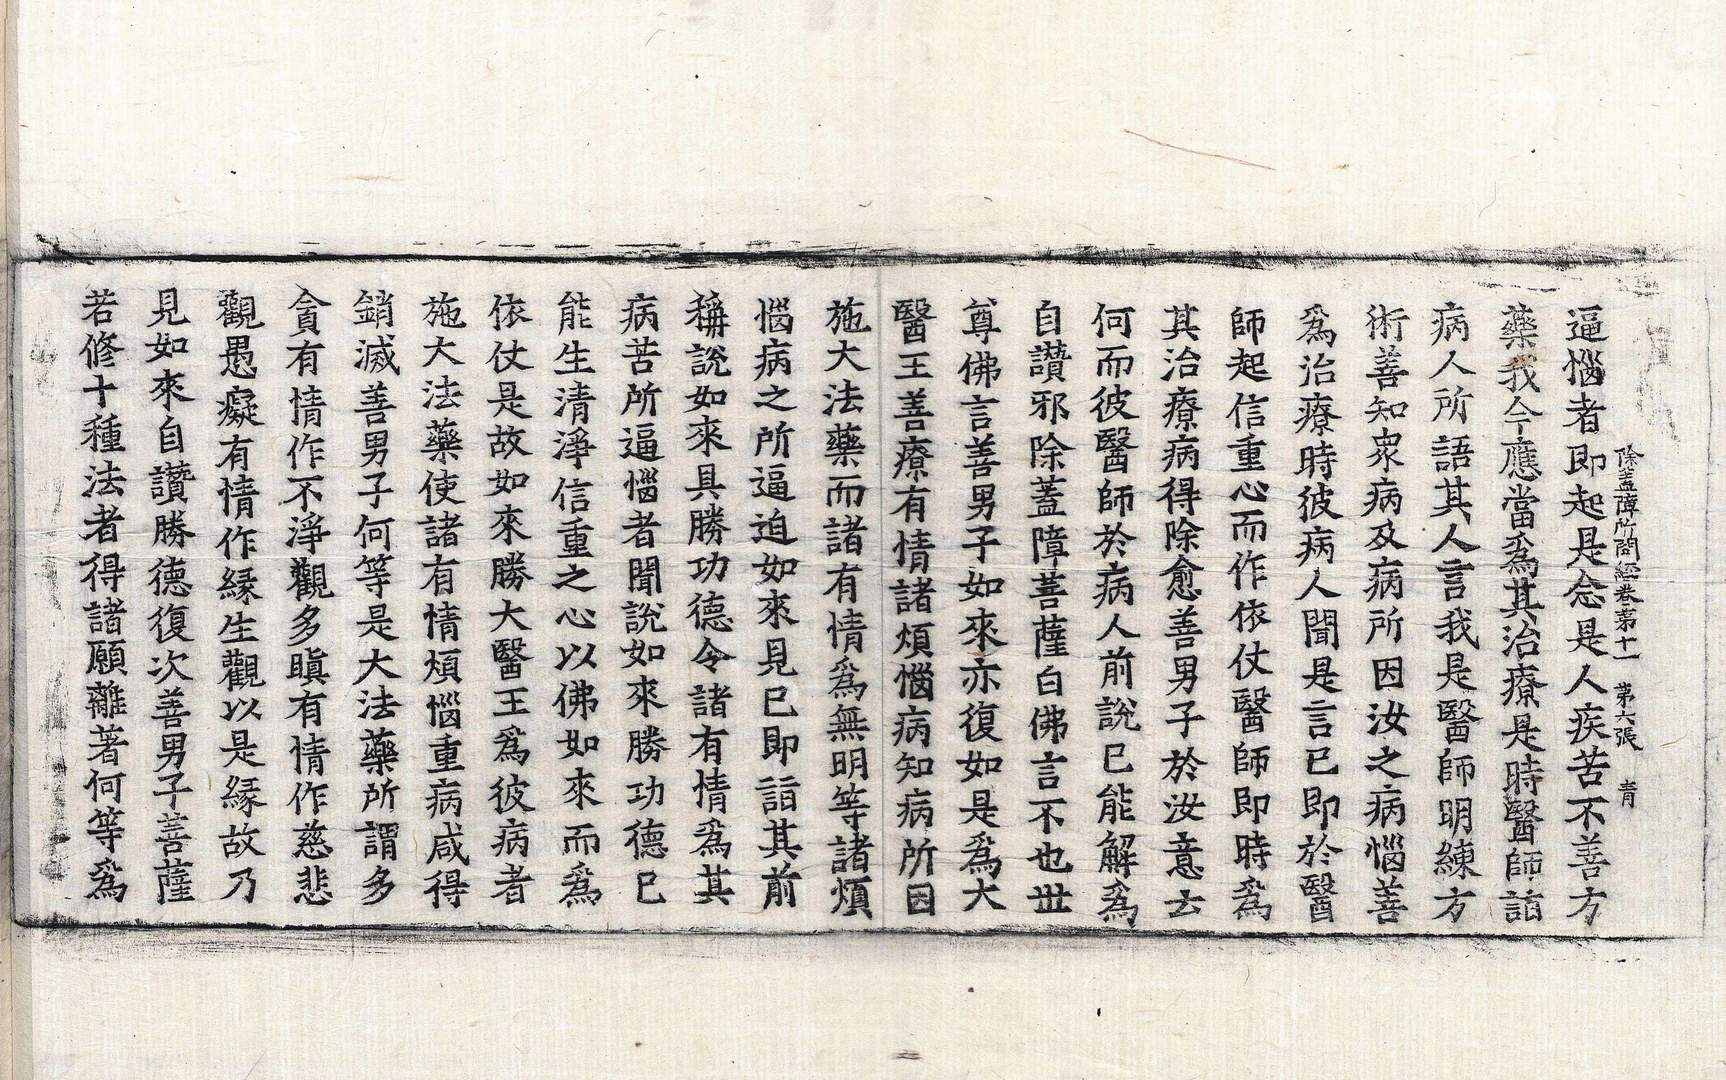 除蓋障所問經卷第十一　第六張　青
逼惱者即起是念是人疾苦不善方
藥我今應當爲其治療是時醫師詣
病人所語其人言我是醫師明練方
術善知衆病及病所因汝之病惱善
爲治療時彼病人聞是言已即於醫
師起信重心而作依仗醫師即時爲
其治療病得除愈善男子於汝意云
何而彼醫師於病人前說已能解爲
自讚邪除蓋障菩薩白佛言不也世
尊佛言善男子如來亦復如是爲大
醫王善療有情諸煩惱病知病所因
施大法藥而諸有情爲無明等諸煩
惱病之所逼迫如來見已即詣其前
稱說如來具勝功德令諸有情爲其
病苦所逼惱者聞說如來勝功德已
能生清淨信重之心以佛如來而爲
依仗是故如來勝大醫王爲彼病者
施大法藥使諸有情煩惱重病咸得
銷滅善男子何等是大法藥所謂多
貪有情作不淨觀多瞋有情作慈悲
觀愚癡有情作緣生觀以是緣故乃
見如來自讚勝德復次善男子菩薩
若修十種法者得諸願離著何等爲